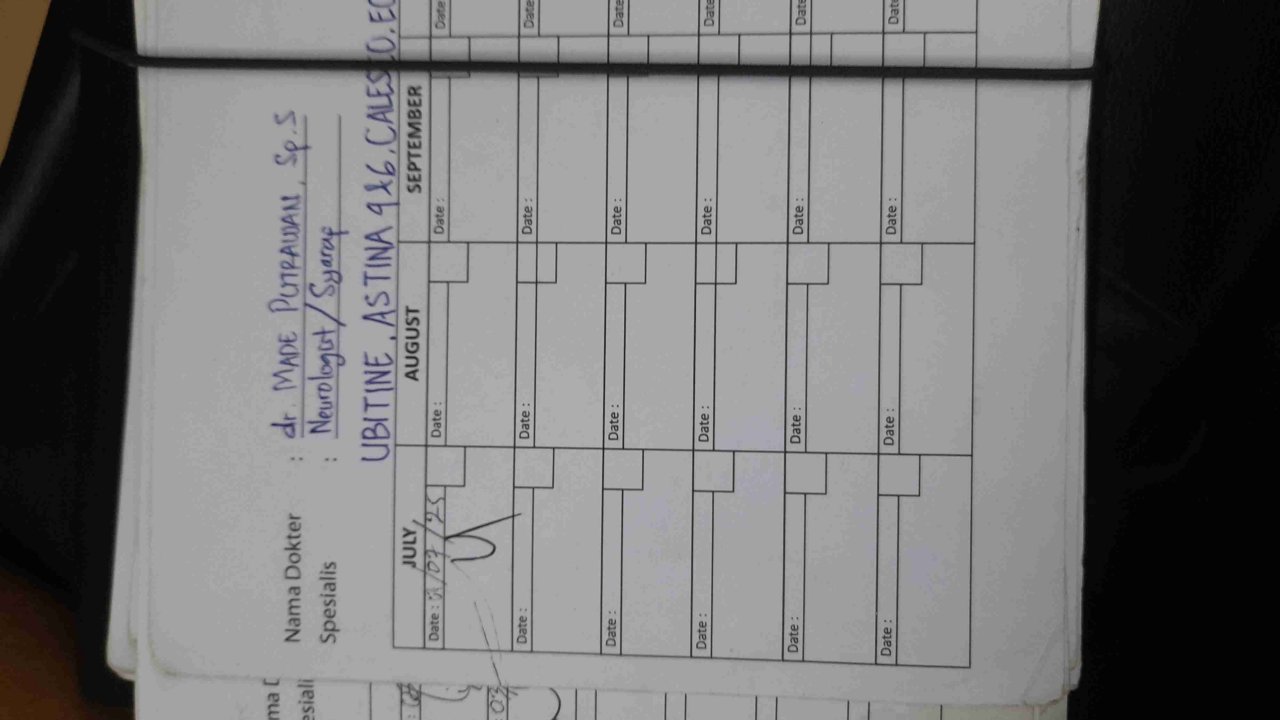 Nama Dokter : dr. MADE PUTRAWAN, Sp.S
Spesialis : Neurologist/Syaraf
UBITINE, ASTINA 4&6, CALESCO, EC
JULY AUGUST SEPTEMBER
Date : /07/25 Date : Date : Date
Date : Date : Date : Date
Date : Date : Date : Date
Date : Date : Date : Date
Date : Date : Date : Date
Date : Date : Date : Date
ma D
esiali
: 03